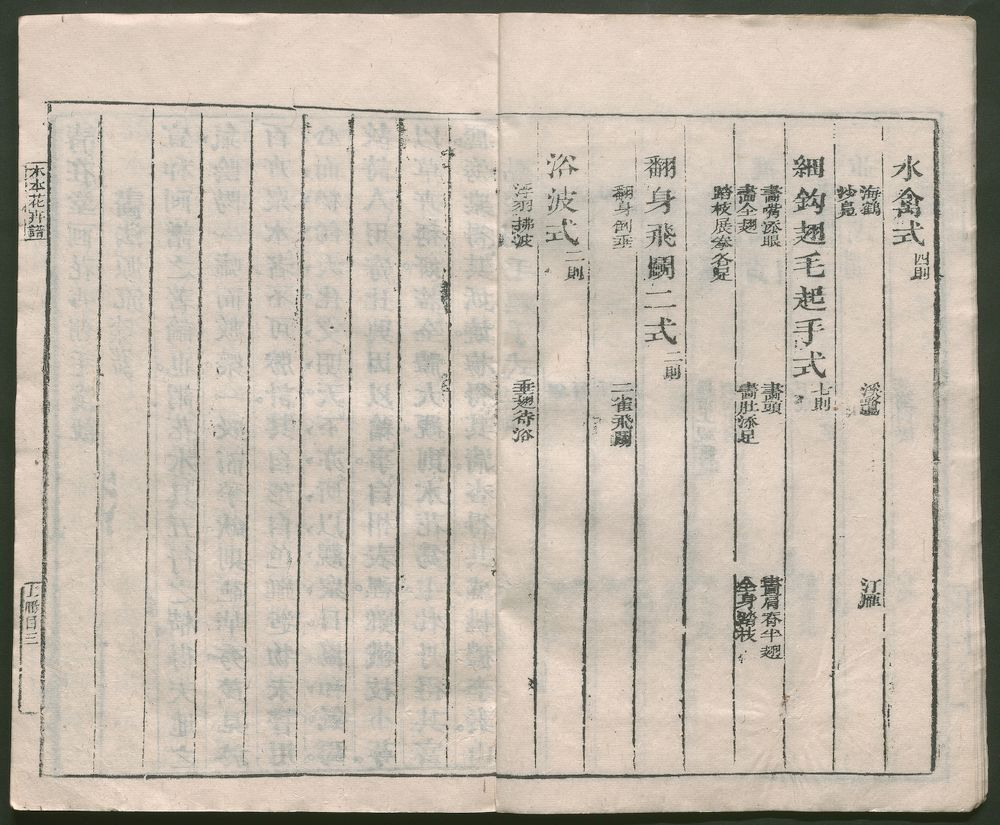 水禽式 四則
海鶴 溪鷘 江雁
鈔鳧
細鈎翅毛起手式 七則
畫嘴添眼 畫頭 畫肩脊半翅
畫全翅 畫肚添足 全身踏枝
踏枝展拳各足
翻身飛鬭二式 二則
翻身倒垂 二雀飛鬭
浴波式 二則
浮羽拂波 垂翅待浴
木本花卉譜
上冊目三